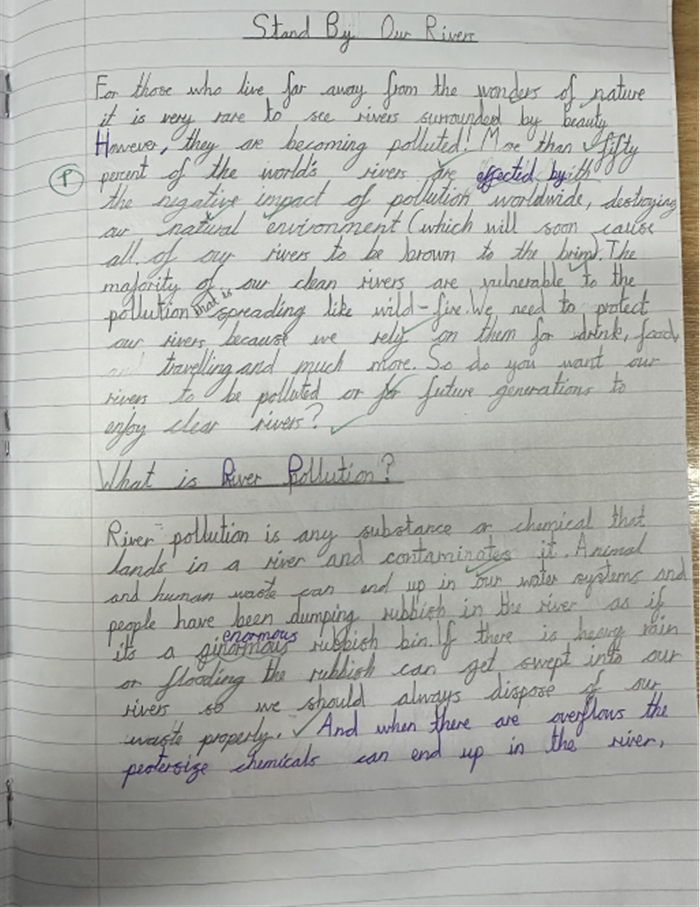 Stand By Our Rivers
For those who live far away from the wonders of nature
it is very rare to see rivers surrounded by beauty.
However, they are becoming polluted! More than fifty
P percent of the world's rivers are effected by
the negative impact of pollution worldwide, destroying
our natural environment (which will soon cause
all of our rivers to be brown to the brim). The
majority of our clean rivers are vulnerable to the
pollution that is spreading like wild-fire. We need to protect
our rivers because we rely on them for drink, food,
travelling and much more. So do you want our
rivers to be polluted or for future generations to
enjoy clear rivers?
What is River Pollution?
River pollution is any substance or chemical that
lands in a river and contaminates it. Animal
and human waste can end up in our water systems and
people have been dumping rubbish in the river as if
its a ginormous enormous rubbish bin. If there is heavy rain
or flooding the rubbish can get swept into our
rivers so we should always dispose of our
waste properly. And when there are overflows the
pestersize chemicals can end up in the river,